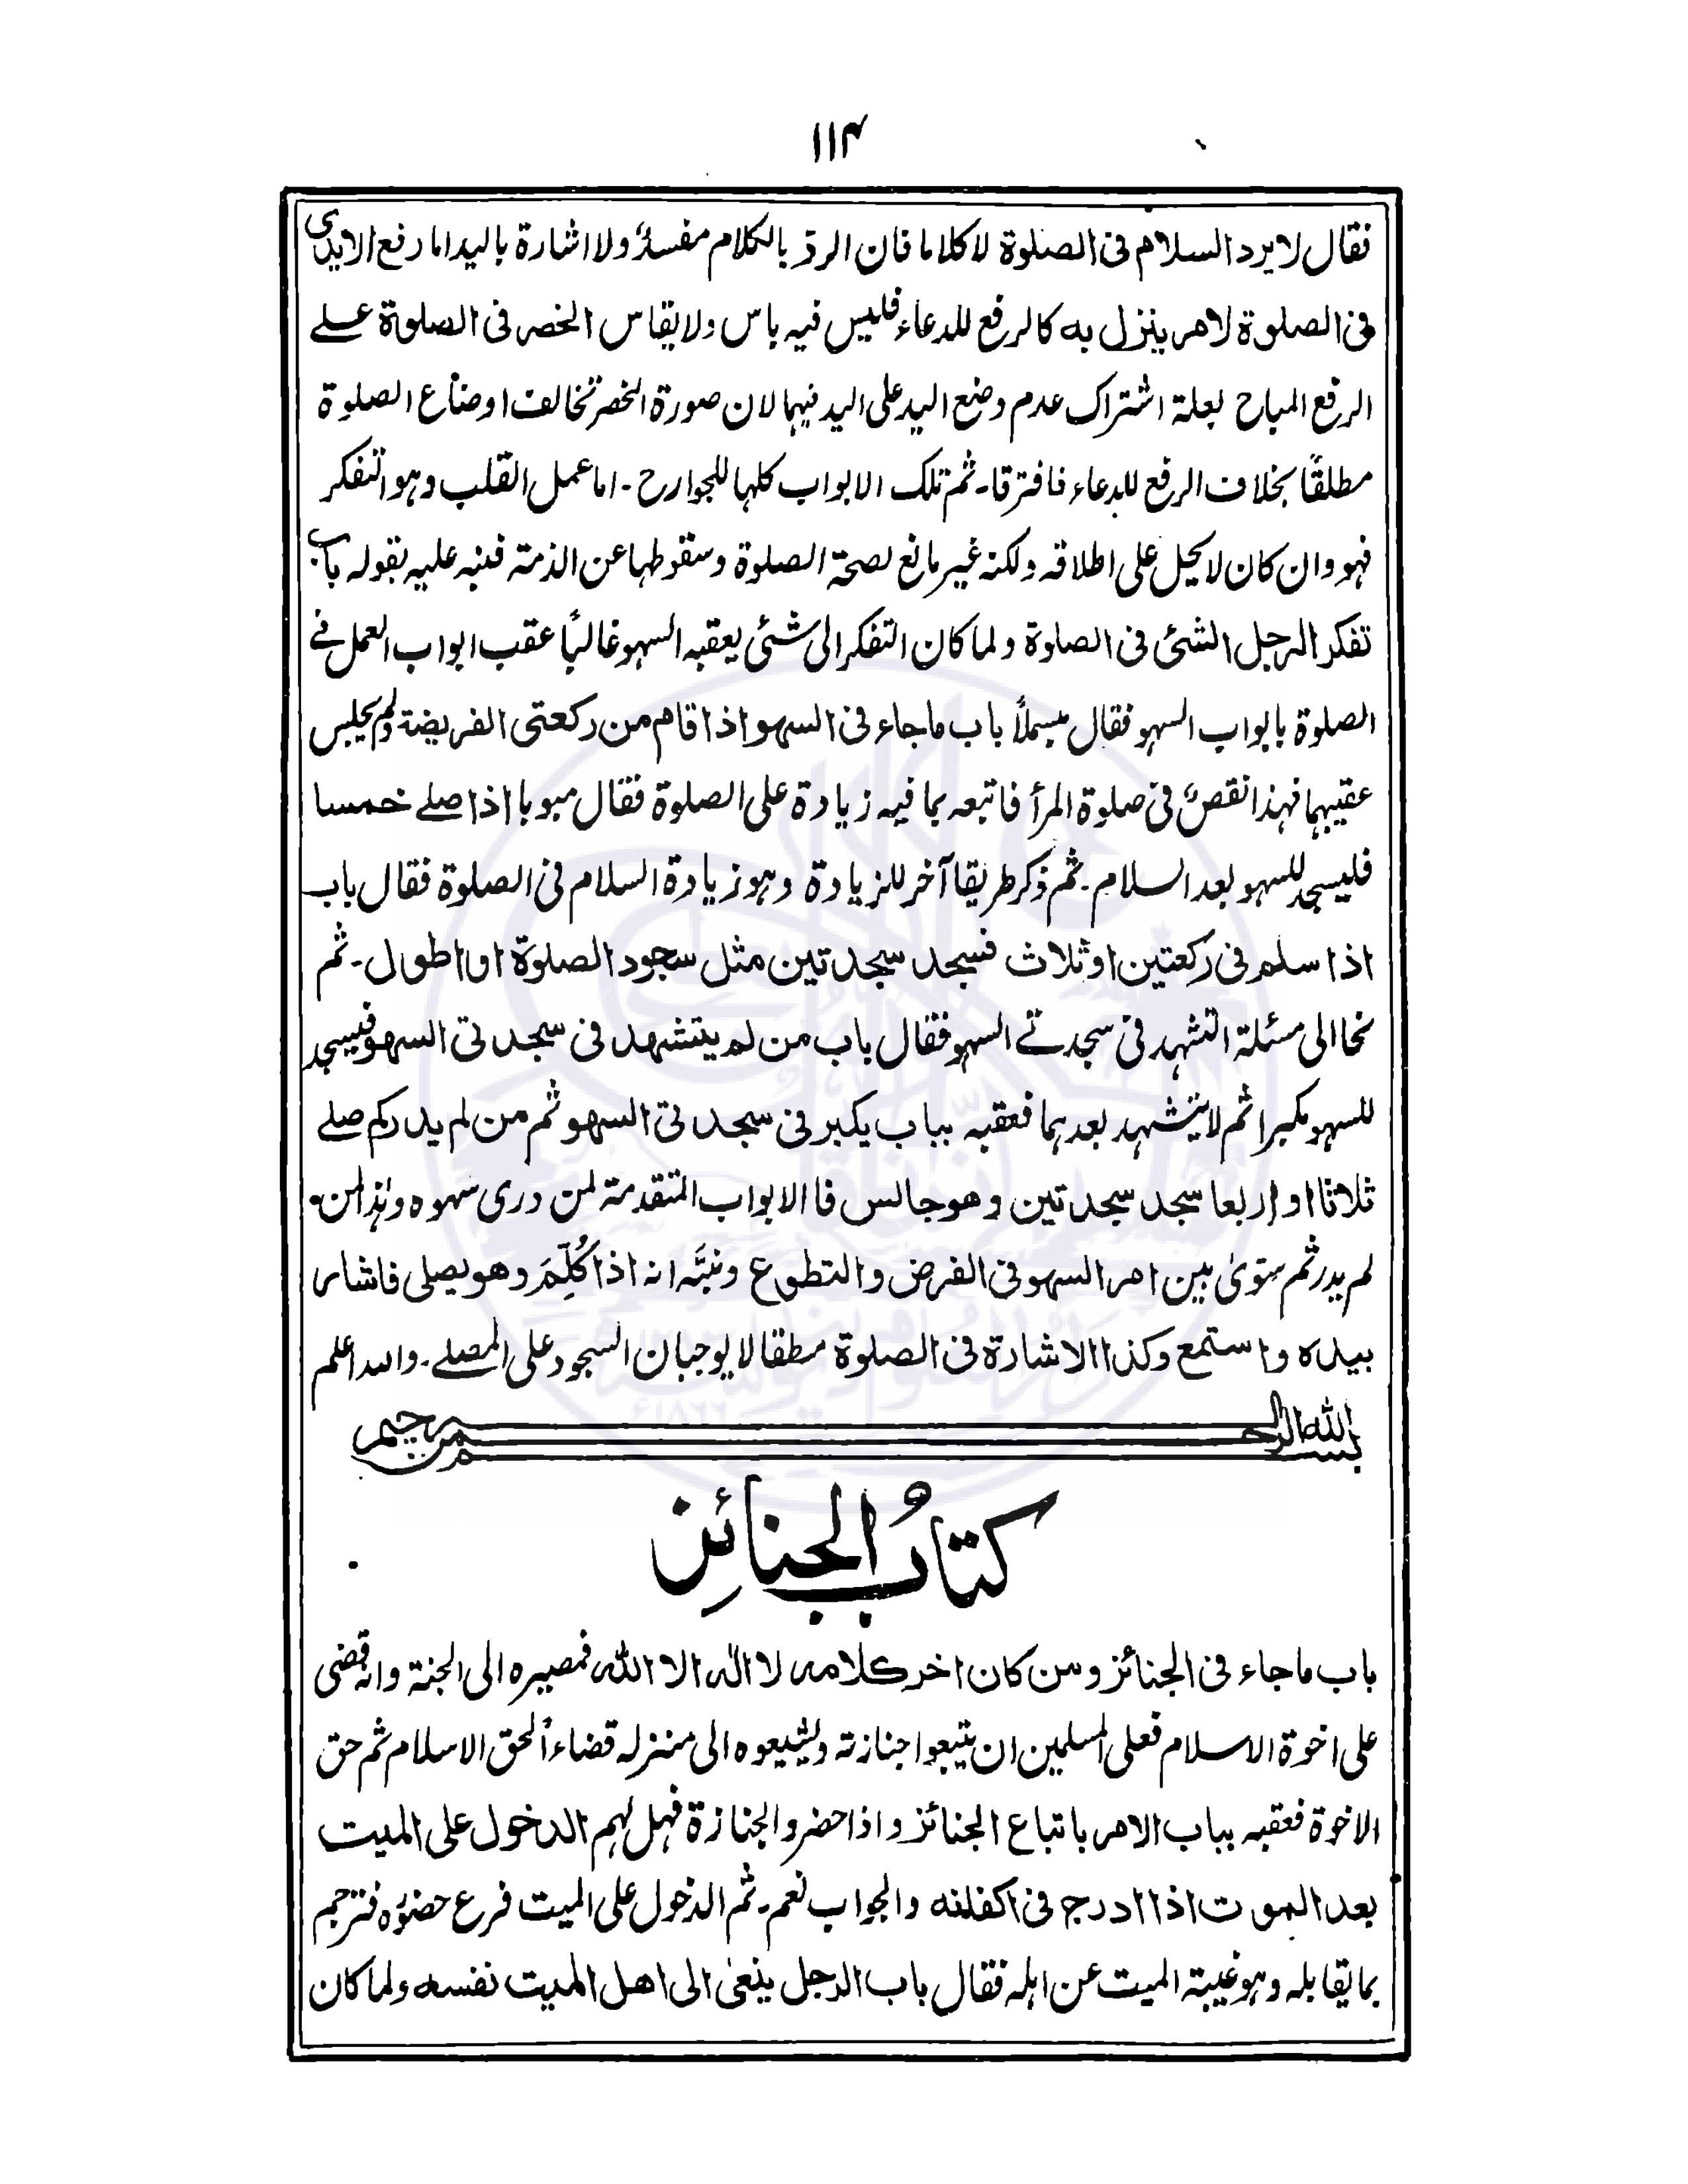 ۱۱۴
فقال لا يرد السلام فى الصلوة لا كلاما فان الرد بالكلام مفسدٌ ولا اشارة باليد اما رفع الايدى
فى الصلوة لامر ينزل به كالرفع للدعاء فليس فيه باس ولا يقاس الخصر فى الصلوة على
الرفع المباح لعلة اشتراك عدم وضع اليد على اليد فيهما لان صورة الخصر تخالف اوضاع الصلوة
مطلقًا بخلاف الرفع للدعاء فافترقا۔ ثم تلك الابواب كلها للجوارح۔ اما عمل القلب وهو التفكر
فهو وان كان لا يحل على اطلاقه ولكنه غير مانع لصحة الصلوة وسقوطها عن الذمة فنبه عليه بقوله باب
تفكر الرجل الشئ فى الصلوة ولما كان التفكر الى شئ يعقبه السهو غالبًا عقب ابواب العمل فى
الصلوة بابواب السهو فقال مبسملاً باب ما جاء فى السهو اذا قام من ركعتى الفريضة ولم يجلس
عقيبهما فهذا نقصٌ فى صلوة المرأ فاتبعه بما فيه زيادة على الصلوة فقال مبوبا اذا صلے خمسا
فليسجد للسهو بعد السلام۔ ثم ذكر طريقا آخر للزيادة وهو زيادة السلام فى الصلوة فقال باب
اذا سلم فى ركعتين او ثلاث فسجد سجدتين مثل سجود الصلوة او اطول۔ ثم
نحا الى مسئلة التشهد فى سجدتے السهو فقال باب من لم يتشهد فى سجدتى السهو فيسجد
للسهو مكبرا ثم لا يتشهد بعدهما فعقبه بباب يكبر فى سجدتى السهو ثم من لم يدر كم صلے
ثلاثا او اربعا سجد سجدتين وهو جالس فالابواب المتقدمة لمن درى سهوه وهذا لمن
لم يدر ثم سَوّىٰ بين امر السهو فى الفرض والتطوع ونبَّه انه اذا كُلِّمَ وهو يصلى فاشار
بيده واستمع وكذا الاشارة فى الصلوة مطقا لا يوجبان السجود على المصلے۔ والله اعلم
بسم الله الرحمن الرحيم
كتابُ الجنائزِ
باب ما جاء فى الجنائز ومن كان اخر كلامه لا اله الا الله فمصيره الى الجنة وانه قضى
على اخوة الاسلام فعلى المسلمين ان يتبعوا جنازته وليشيعوه الى منزله قضاءً لحق الاسلام ثم حق
الاخوة فعقبه بباب الامر باتباع الجنائز واذا حضروا الجنازة فهل لهم الدخول على الميت
بعد الموت اذا ادرج فى اكفانه والجواب نعم۔ ثم الدخول على الميت فرع حضوُره فترجم
بما يقابله وهو غيبة الميت عن اهله فقال باب الرجل ينعىٰ الى اهل الميت نفسه ولما كان